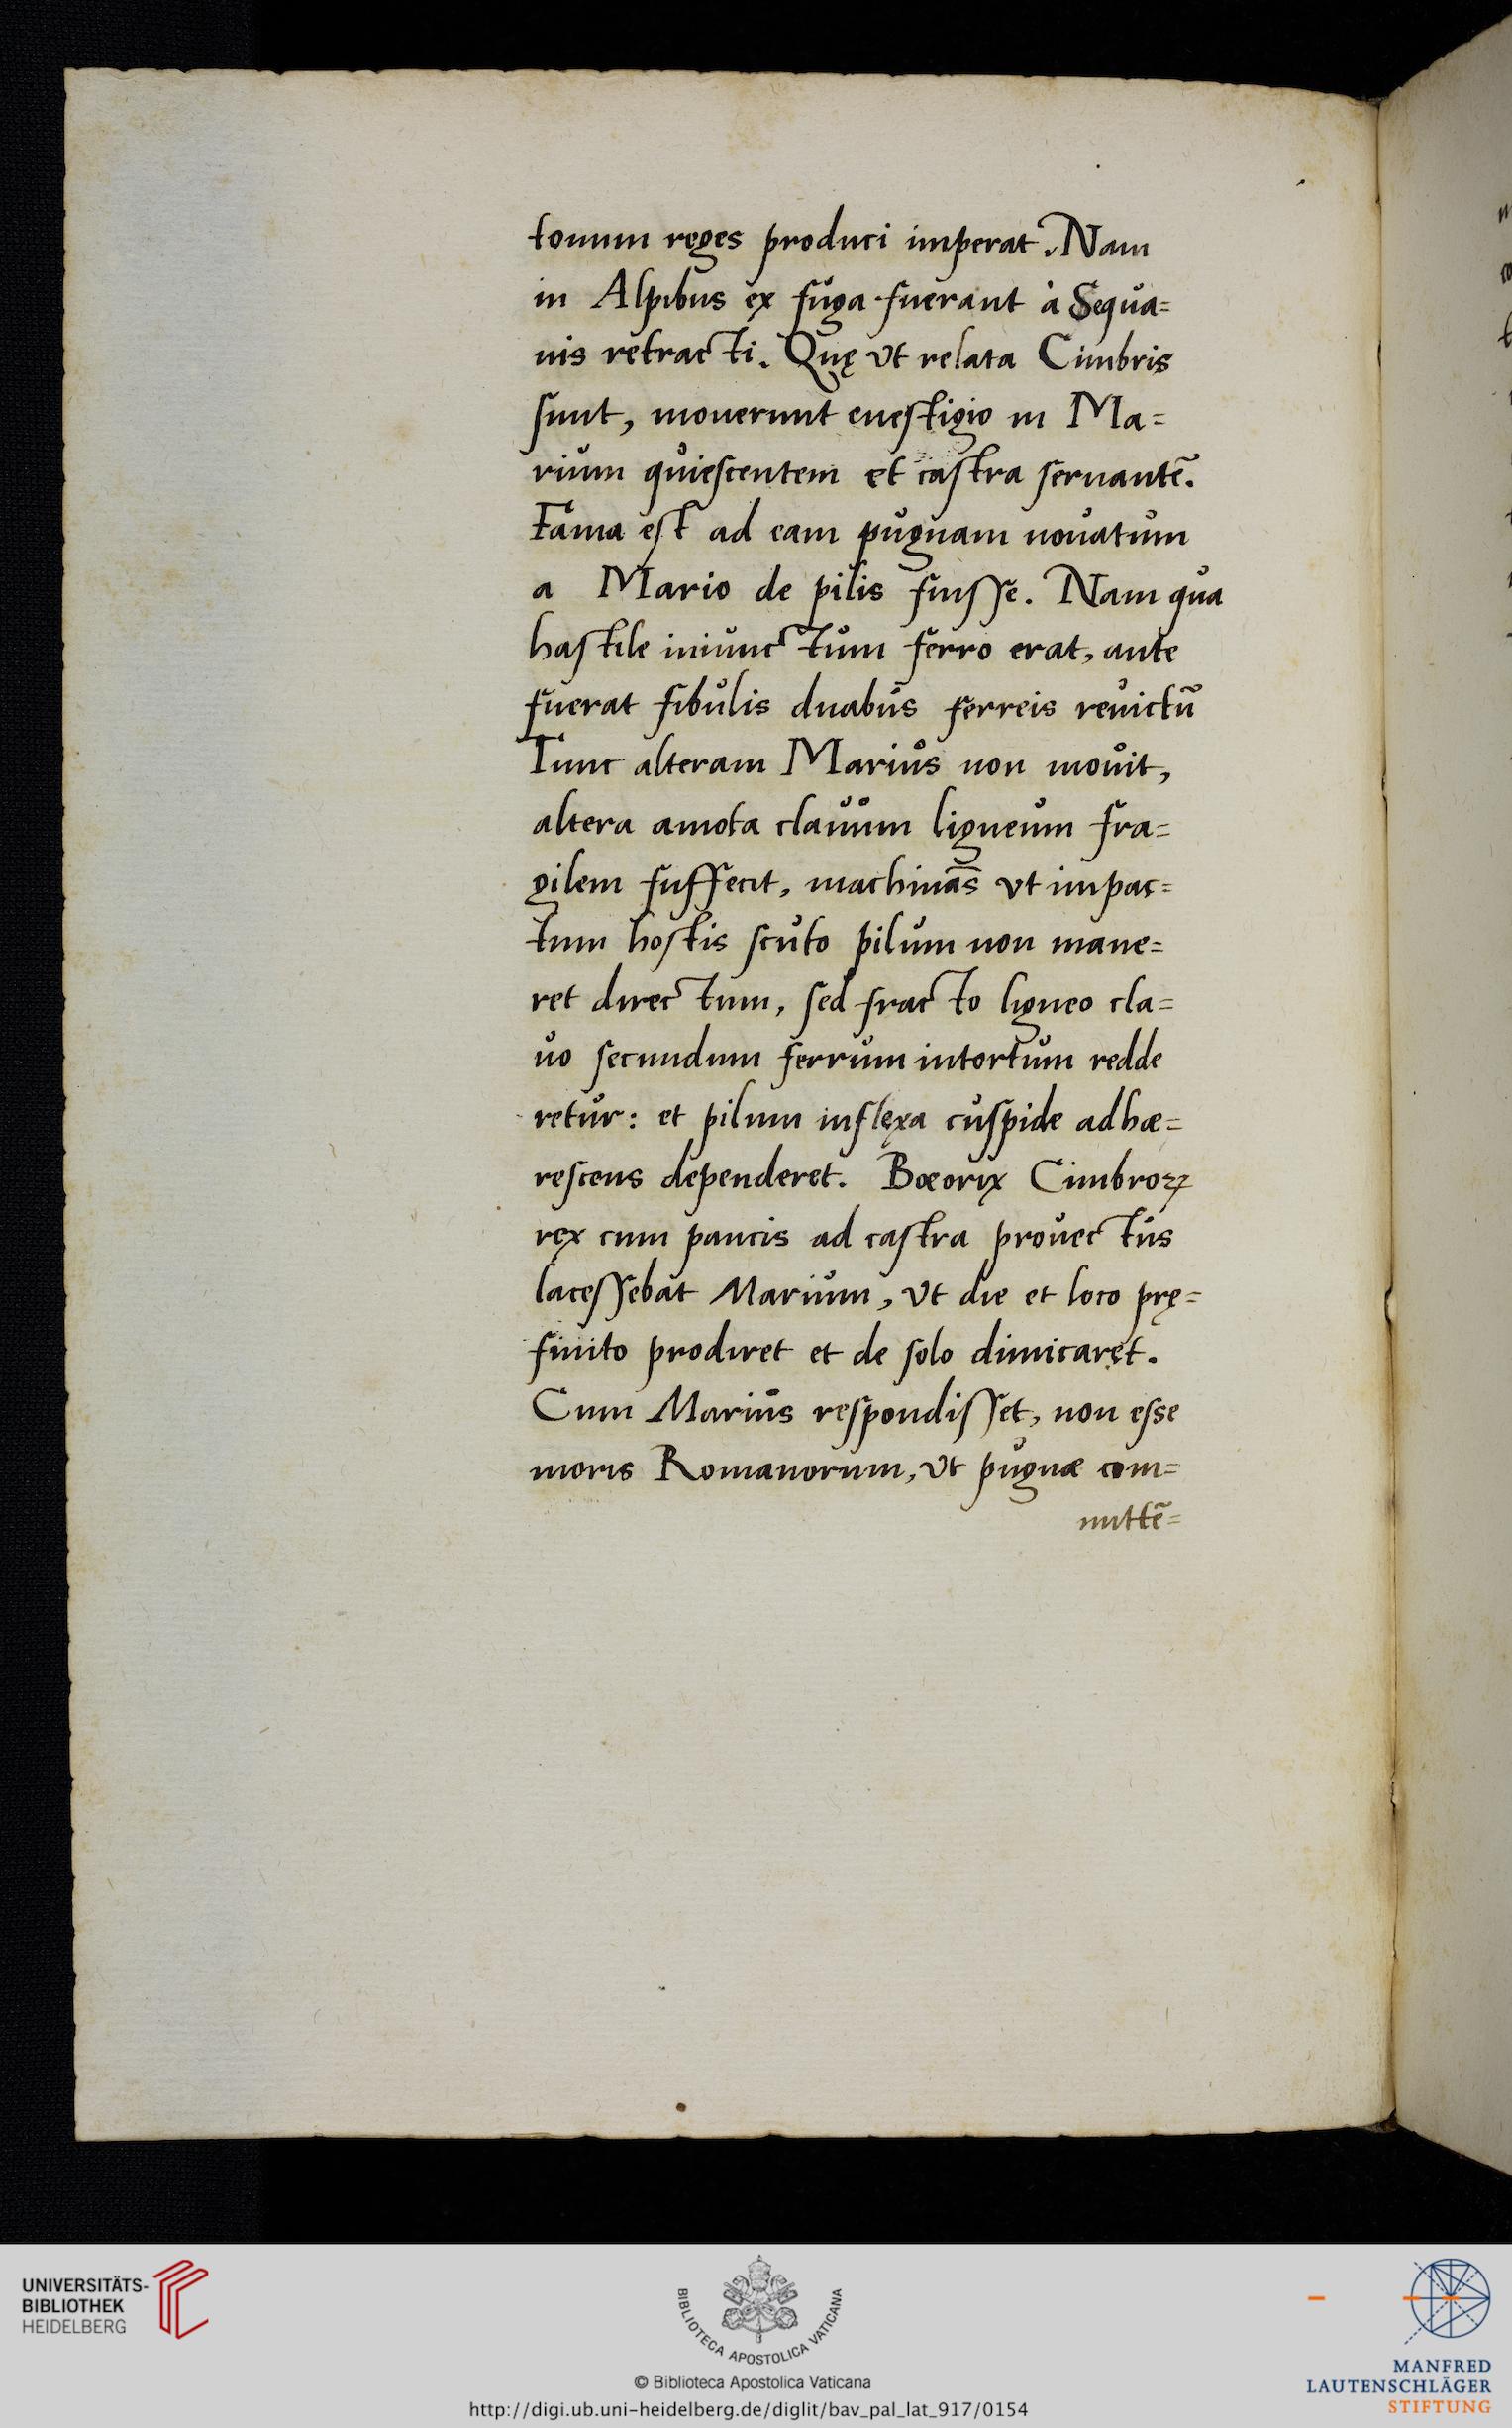 tonum reges produci imperat. Nam
in Alpibus ex fuga fuerant à Sequa=
nis retracti. Quę vt relata Cimbris
sunt, mouerunt euestigio in Ma=
rium quiescentem et castra seruantē.
Fama est ad eam pugnam nouatum
a Mario de pilis fuisse. Nam qua
hastile iniunctum ferro erat, ante
fuerat fibulis duabus ferreis reuictū
Tunc alteram Marius non mouit,
altera amota clauum ligneum fra=
gilem suffecit, machinās vt impac=
tum hostis scuto pilum non mane=
ret directum, sed fracto ligneo cla=
uo secundum ferrum intortum redde
retur: et pilum inflexa cuspide adhæ=
rescens dependeret. Bœorix Cimbroꝝ
rex cum paucis ad castra prouectus
lacessebat Marium, vt die et loco prę=
finito prodiret et de solo dimicaret.
Cum Marius respondisset, non esse
moris Romanorum, vt pugnæ com=
mittē=
UNIVERSITÄTS-
BIBLIOTHEK
HEIDELBERG
BIBLIOTECA APOSTOLICA VATICANA
© Biblioteca Apostolica Vaticana
http://digi.ub.uni-heidelberg.de/diglit/bav_pal_lat_917/0154
MANFRED
LAUTENSCHLÄGER
STIFTUNG